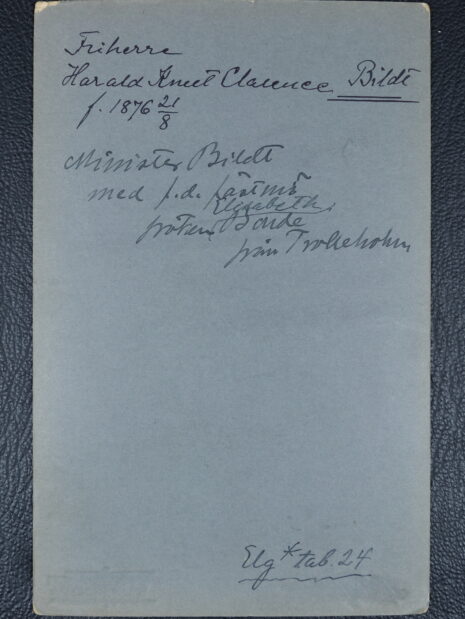 Friherre
Harald Knut Clarence Bildt
f. 1876 21/8
Minister Bildt
med f.d. fästmö
Elisabeth
fröken Bonde
från Trolleholm
Elg* tab. 24